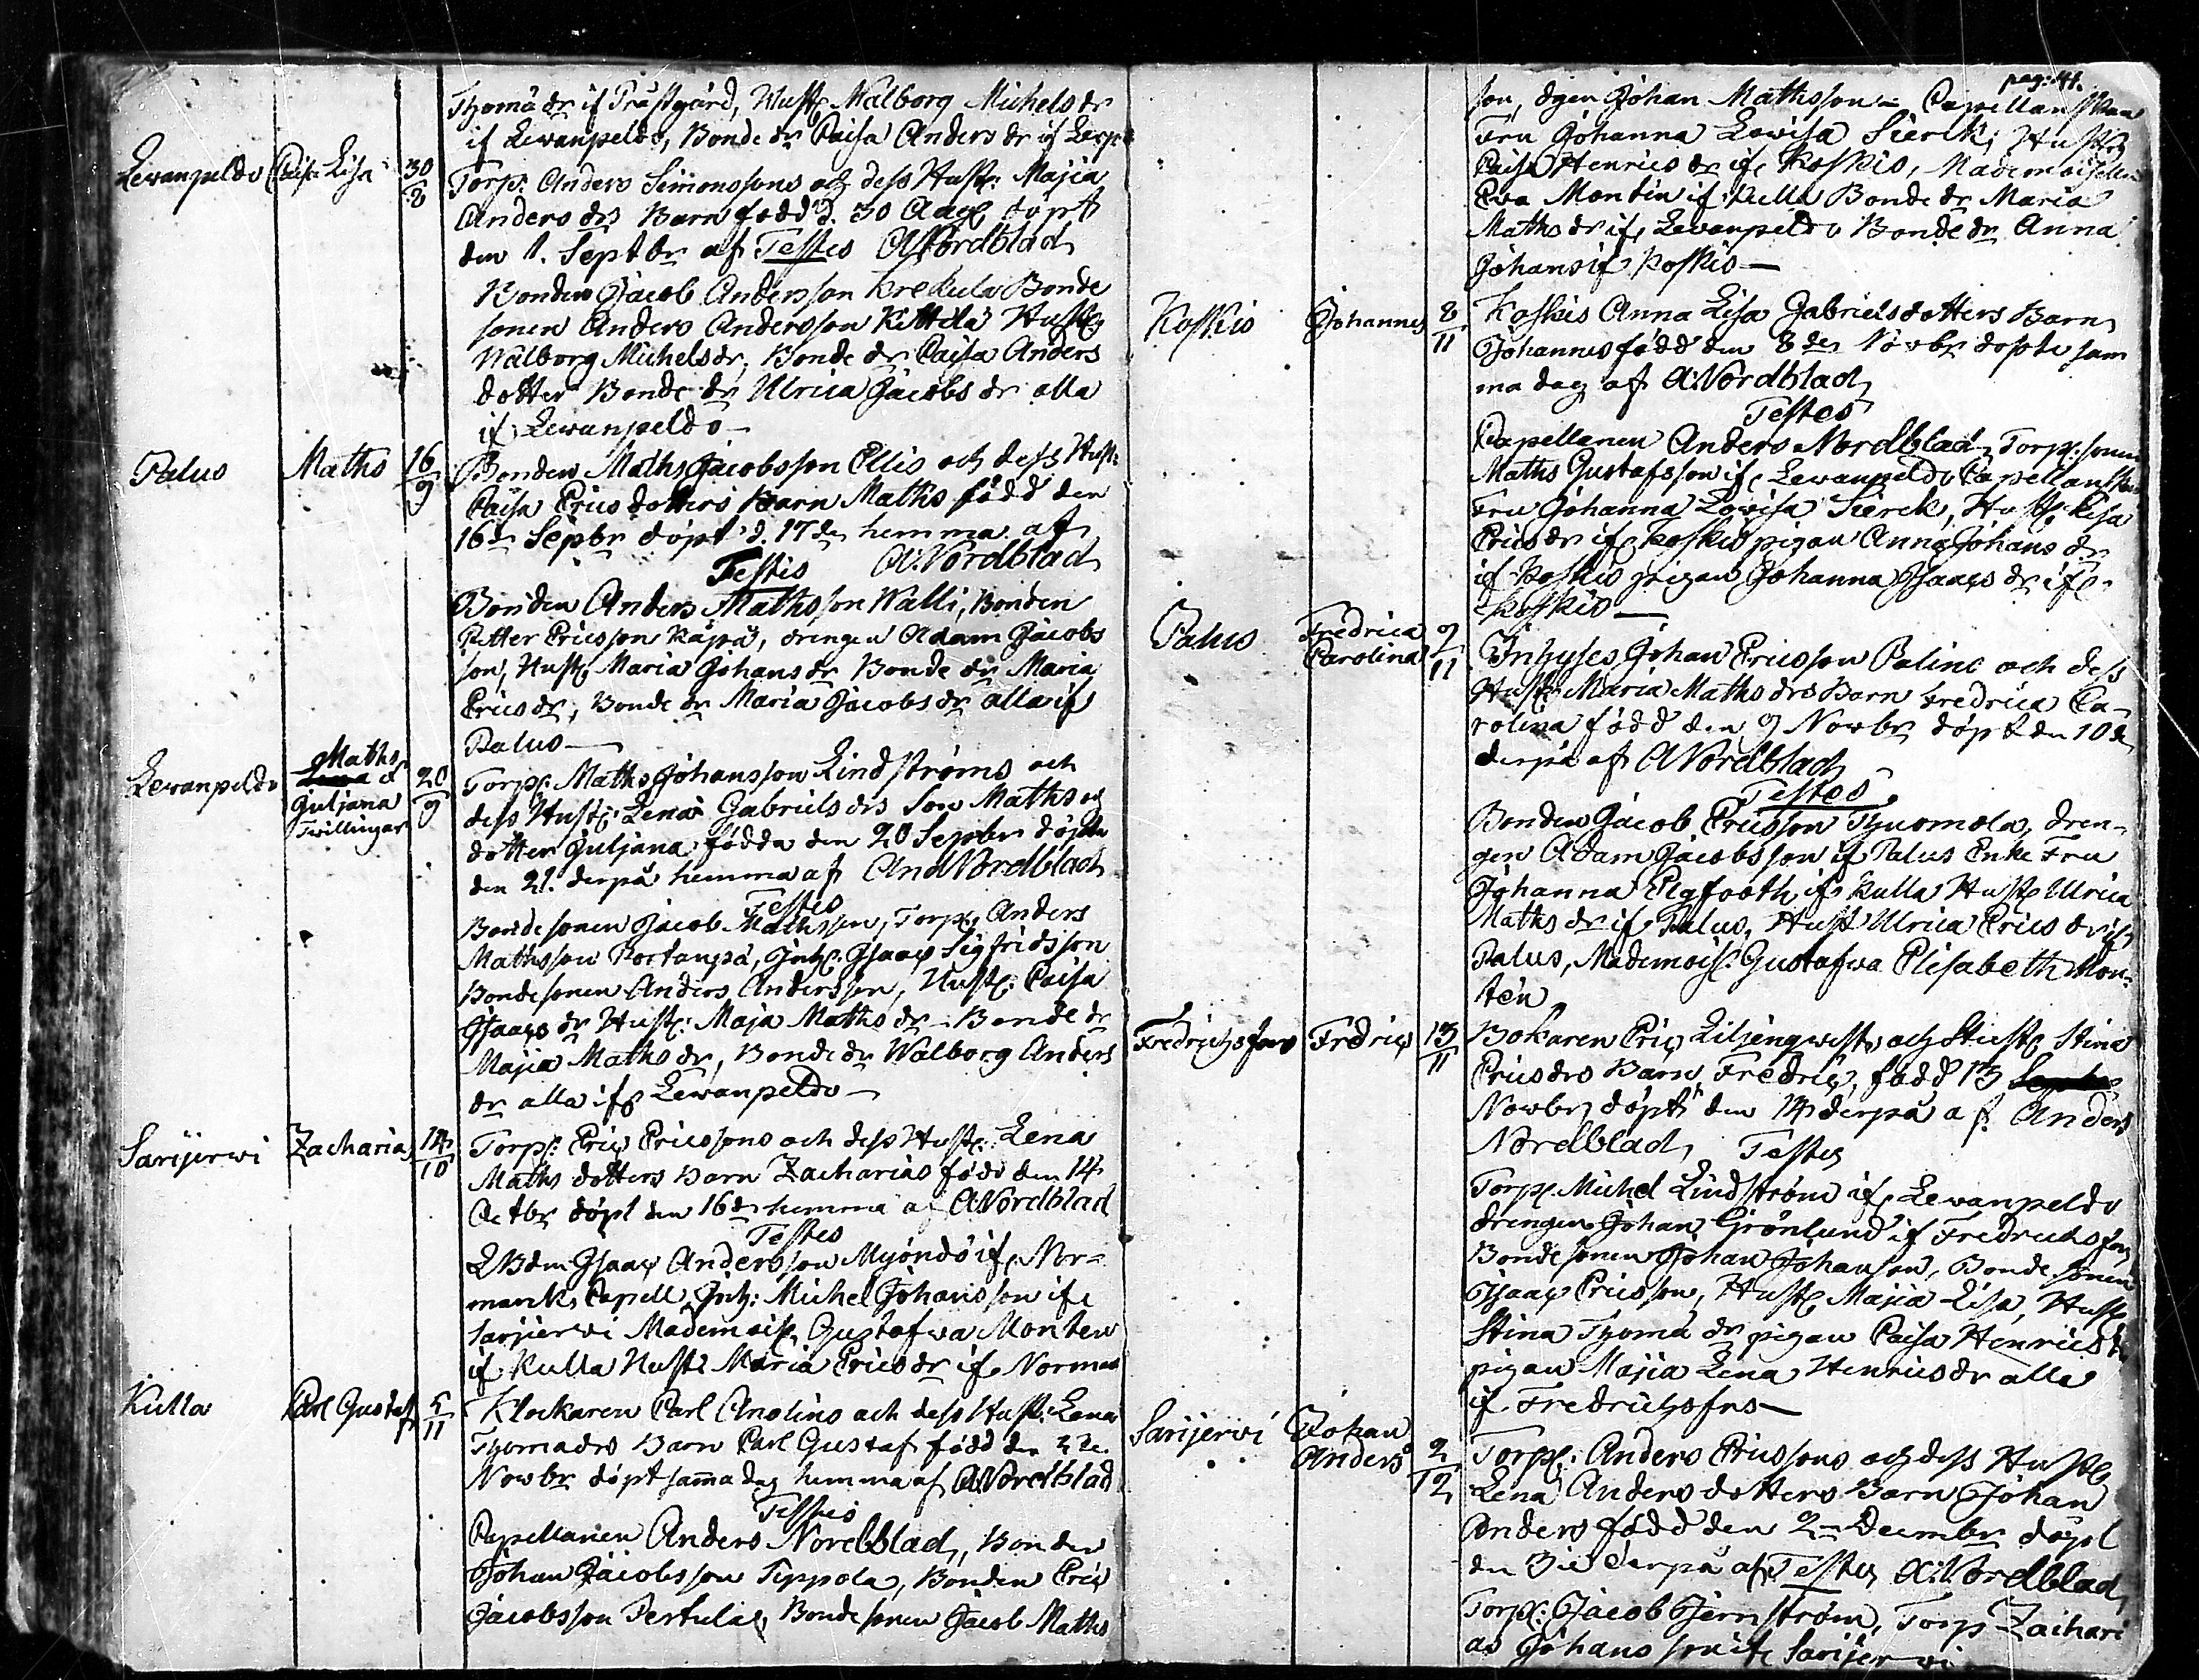 Thomæ dr if Prästgård, Hust: Walborg Michels dr
if Lewanpeldo, Bonde dr Caisa Anders dr if Lewp
Lewanpeldo Caisa Lisa 30/8 Torp: Anders Simonssons och dess Hust: Majia
Anders drs Barn född d. 30 Aug döpt
den 1. Septbr af Testes A Nordblad
Bonden Jacob Andersson Krekula Bonde
sonen Anders Andersson Kittilä Hust:
Wälborg Michelsdr, Bonde dr Caisa Anders
dotter Bonde dr Ulrica Jacobs dr alla
if Lewanpeldo
Palus Maths 16/9 Bonden Maths Jacobsson Ellis och dess Hust:
Caisa Erics dotters Barn Maths född den
16de Sepbr döpt d. 17de hemma af
Testis A: Nordblad
Bonden Anders Mathsson Walli, Bonden
Petter Ericsson Käpä, drengen Adam Jacobs
son, Hust: Maria Johans dr Bonde dr Maria
Erics dr, Bonde dr Maria Jacobs dr alla if
Palus
Lewanpeldo Maths & Juljana Twillingar 20/9 Torp: Maths Johansson Lindströms och
dess Hust: Lena Gabriels drs son Maths och
dotter Juljana födda den 20 Sepbr döpta
den 21. derpå hemma af And Nordblad
Testes
Bondesonen Jacob Mathsson, Torp: Anders
Mathsson Portanpä, Inh: Isaac Sigfridsson
Bondesonen Anders Andersson, Hust: Caisa
Isaacs dr Hust: Maja Maths dr Bonde dr
Majia Maths dr, Bonde dr Walborg Anders
dr alla if Lewanpeldo
Sarijerwi Zacharias 14/10 Torp: Eric Ericssons och dess Hust: Lena
Maths dotters Barn Zacharias född den 14
Octbr döpt den 16de hemma af A Nordblad
Testes
Isaac Andersson Myöndö if Nor=
mark Capell, Inh: Michel Johansson if
Sarijerwi Mademois: Gustafwa Monten
if Kulla Hust: Maria Erics dr if Normar
Kulla Carl Gustaf 5/11 Klockaren Carl Anolins och dess Hust: Lena
Thomædrs Barn Carl Gustaf född den 5te
Nowbr döpt samma dag hemma af A: Nordblad
Testis
Capellanen Anders Nordblad, Bonden
Johan Jacobsson Teppola, Bonden Eric
Jacobsson Pertula, Bonde sonen Jacob Maths
pag: 41.
son, dgen Johan Mathsson Capellanskan
Fru Johanna Lowisa Sierck, Hust:
Caisa Henrics dr if Koskis, Mademoiselle
Eva Montin if Kulla Bonde dr Maria
Maths dr if Lewanpeldo Bonde dr Anna
Johans if Koskis
Koskis Johannes 8/11 Koskis Anna Lisa Gabrielsdotters Barn
Johannes född den 8de Nowbr döpte sam
ma dag af A: Nordblad
Testes
Capellanen Anders Nordblad, Torp: sonen
Maths Gustafsson if Lewanpeldo Capellanskan
Fru Johanna Lowisa Sierck, Hust: Lisa
Erics dr if Koskis pigan Anna Johans dr
if Koskis pigan Johanna Isaacs dr if
Koskis
Palus Fredrica Carolina 9/11 Inhyses Johan Ericsson Palins och dess
Hust: Maria Maths drs Barn Fredrica Ca-
rolina född den 9 Nowbr döpt den 10de
derpå af A Nordblad
Testes
Bonden Jacob Ericsson Thuomola, dren-
gen Adam Jacobsson if Palus Enke Fru
Johanna Elgfooth if Kulla Hust: Ulrica
Maths dr if Palus, Hust Ulrica Erics dr if
Palus, Mademois: Gustafwa Elisabeth Mon-
tén
Fredrichsfors Fredric 13/11 Bokaren Eric Liljenqwists och Hust: Stina
Ericsdrs Barn Fredric, född 13 Septbr
Nowbr döpt den 14 derpå af Anders
Nordblad, Testes
Torp: Michel Lindström if Lewanpeldo
drengen Johan Grönlund if Fredrichsfors
Bonde sonen Johan Johansson, Bonde sonen
Isaac Ericsson, Hust: Majia Lisa, Hust:
Stina Thomæ dr pigan Caisa Henrics dr
pigan Majia Lena Henrics dr alla
if Fredrichsfrs
Sarijerwi Johan Anders 2/12 Torp: Anders Ericssons och dess Hust:
Lena Anders dotters Barn Johan
Anders född den 2 Decembr döpt
den 3ie derpå af Testes A: Nordblad
Torp: Jacob Jernström, Torp Zachari
as Johansson if Sarijerwi